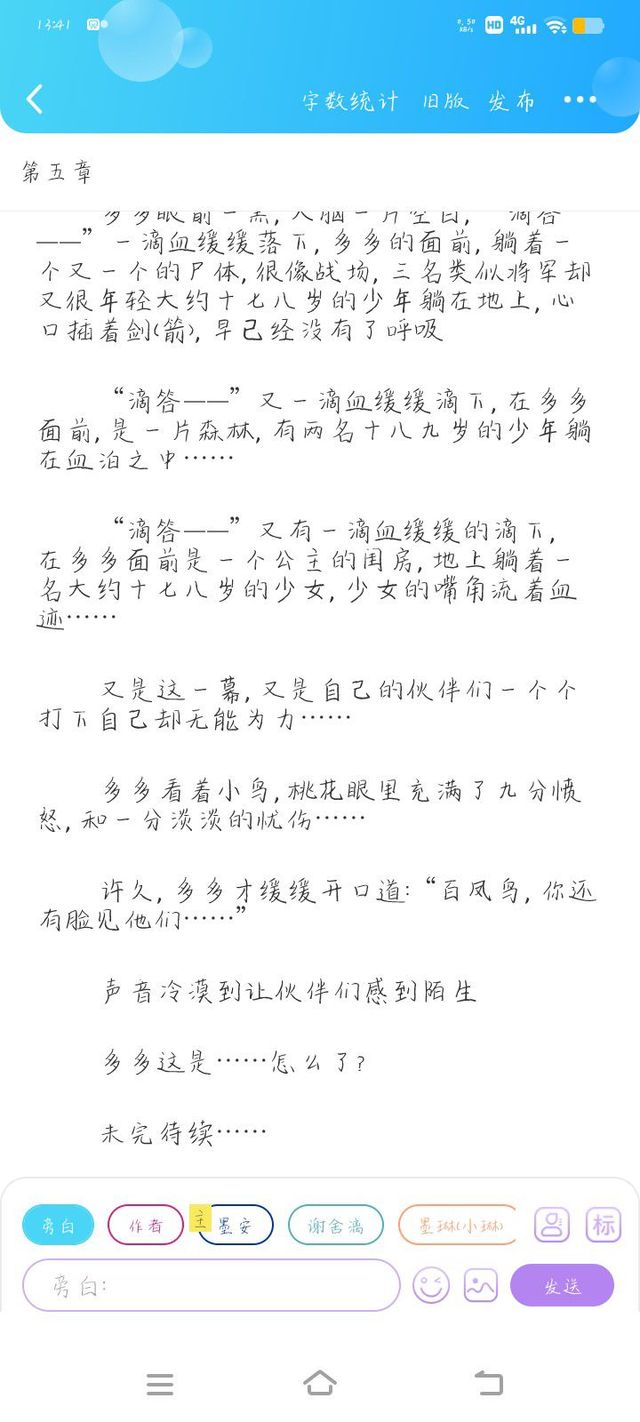 13:41
0.50 KB/s HD 4G
字数统计 旧版 发布
第五章
多多眼前一黑,大脑一片空白,“滴答
——”一滴血缓缓落下,多多的面前,躺着一
个又一个的尸体,很像战场,三名类似将军却
又很年轻大约十七八岁的少年躺在地上,心
口插着剑(箭),早已经没有了呼吸
“滴答——”又一滴血缓缓滴下,在多多
面前,是一片森林,有两名十八九岁的少年躺
在血泊之中……
“滴答——”又有一滴血缓缓的滴下,
在多多面前是一个公主的闺房,地上躺着一
名大约十七八岁的少女,少女的嘴角流着血
迹……
又是这一幕,又是自己的伙伴们一个个
打下自己却无能为力……
多多看着小鸟,桃花眼里充满了九分愤
怒,和一分淡淡的忧伤……
许久,多多才缓缓开口道:“百凤鸟,你还
有脸见他们……”
声音冷漠到让伙伴们感到陌生
多多这是……怎么了?
未完待续……
旁白 作者 主 墨安 谢舍漓 墨琳(小琳) 标
旁白: 发送